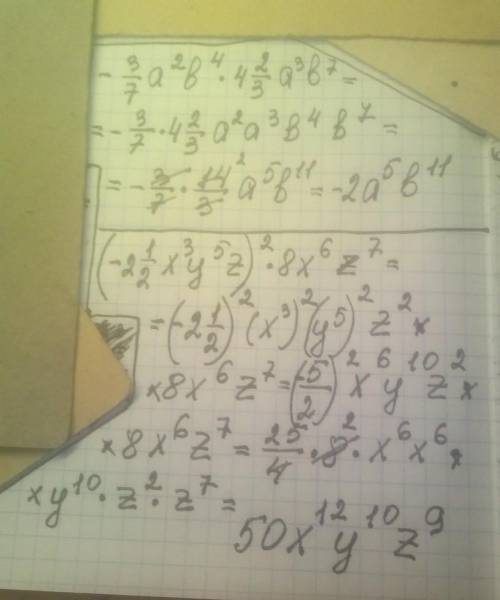 - 3/7 a²b⁴ · 4 2/3 a³b⁷ =
= - 3/7 · 4 2/3 a²a³b⁴b⁷ =
= - 3/7 · 14/3 ² a⁵b¹¹ = -2a⁵b¹¹
(-2 1/2 x³y⁵z)² · 8x⁶z⁷ =
= (-2 1/2)² (x³)² (y⁵)² z² ×
×8x⁶z⁷ = (-5/2)² x⁶y¹⁰z² ×
×8x⁶z⁷ = 25/4 · 8² · x⁶x⁶ ×
×y¹⁰ · z² · z⁷ =
50x¹²y¹⁰z⁹